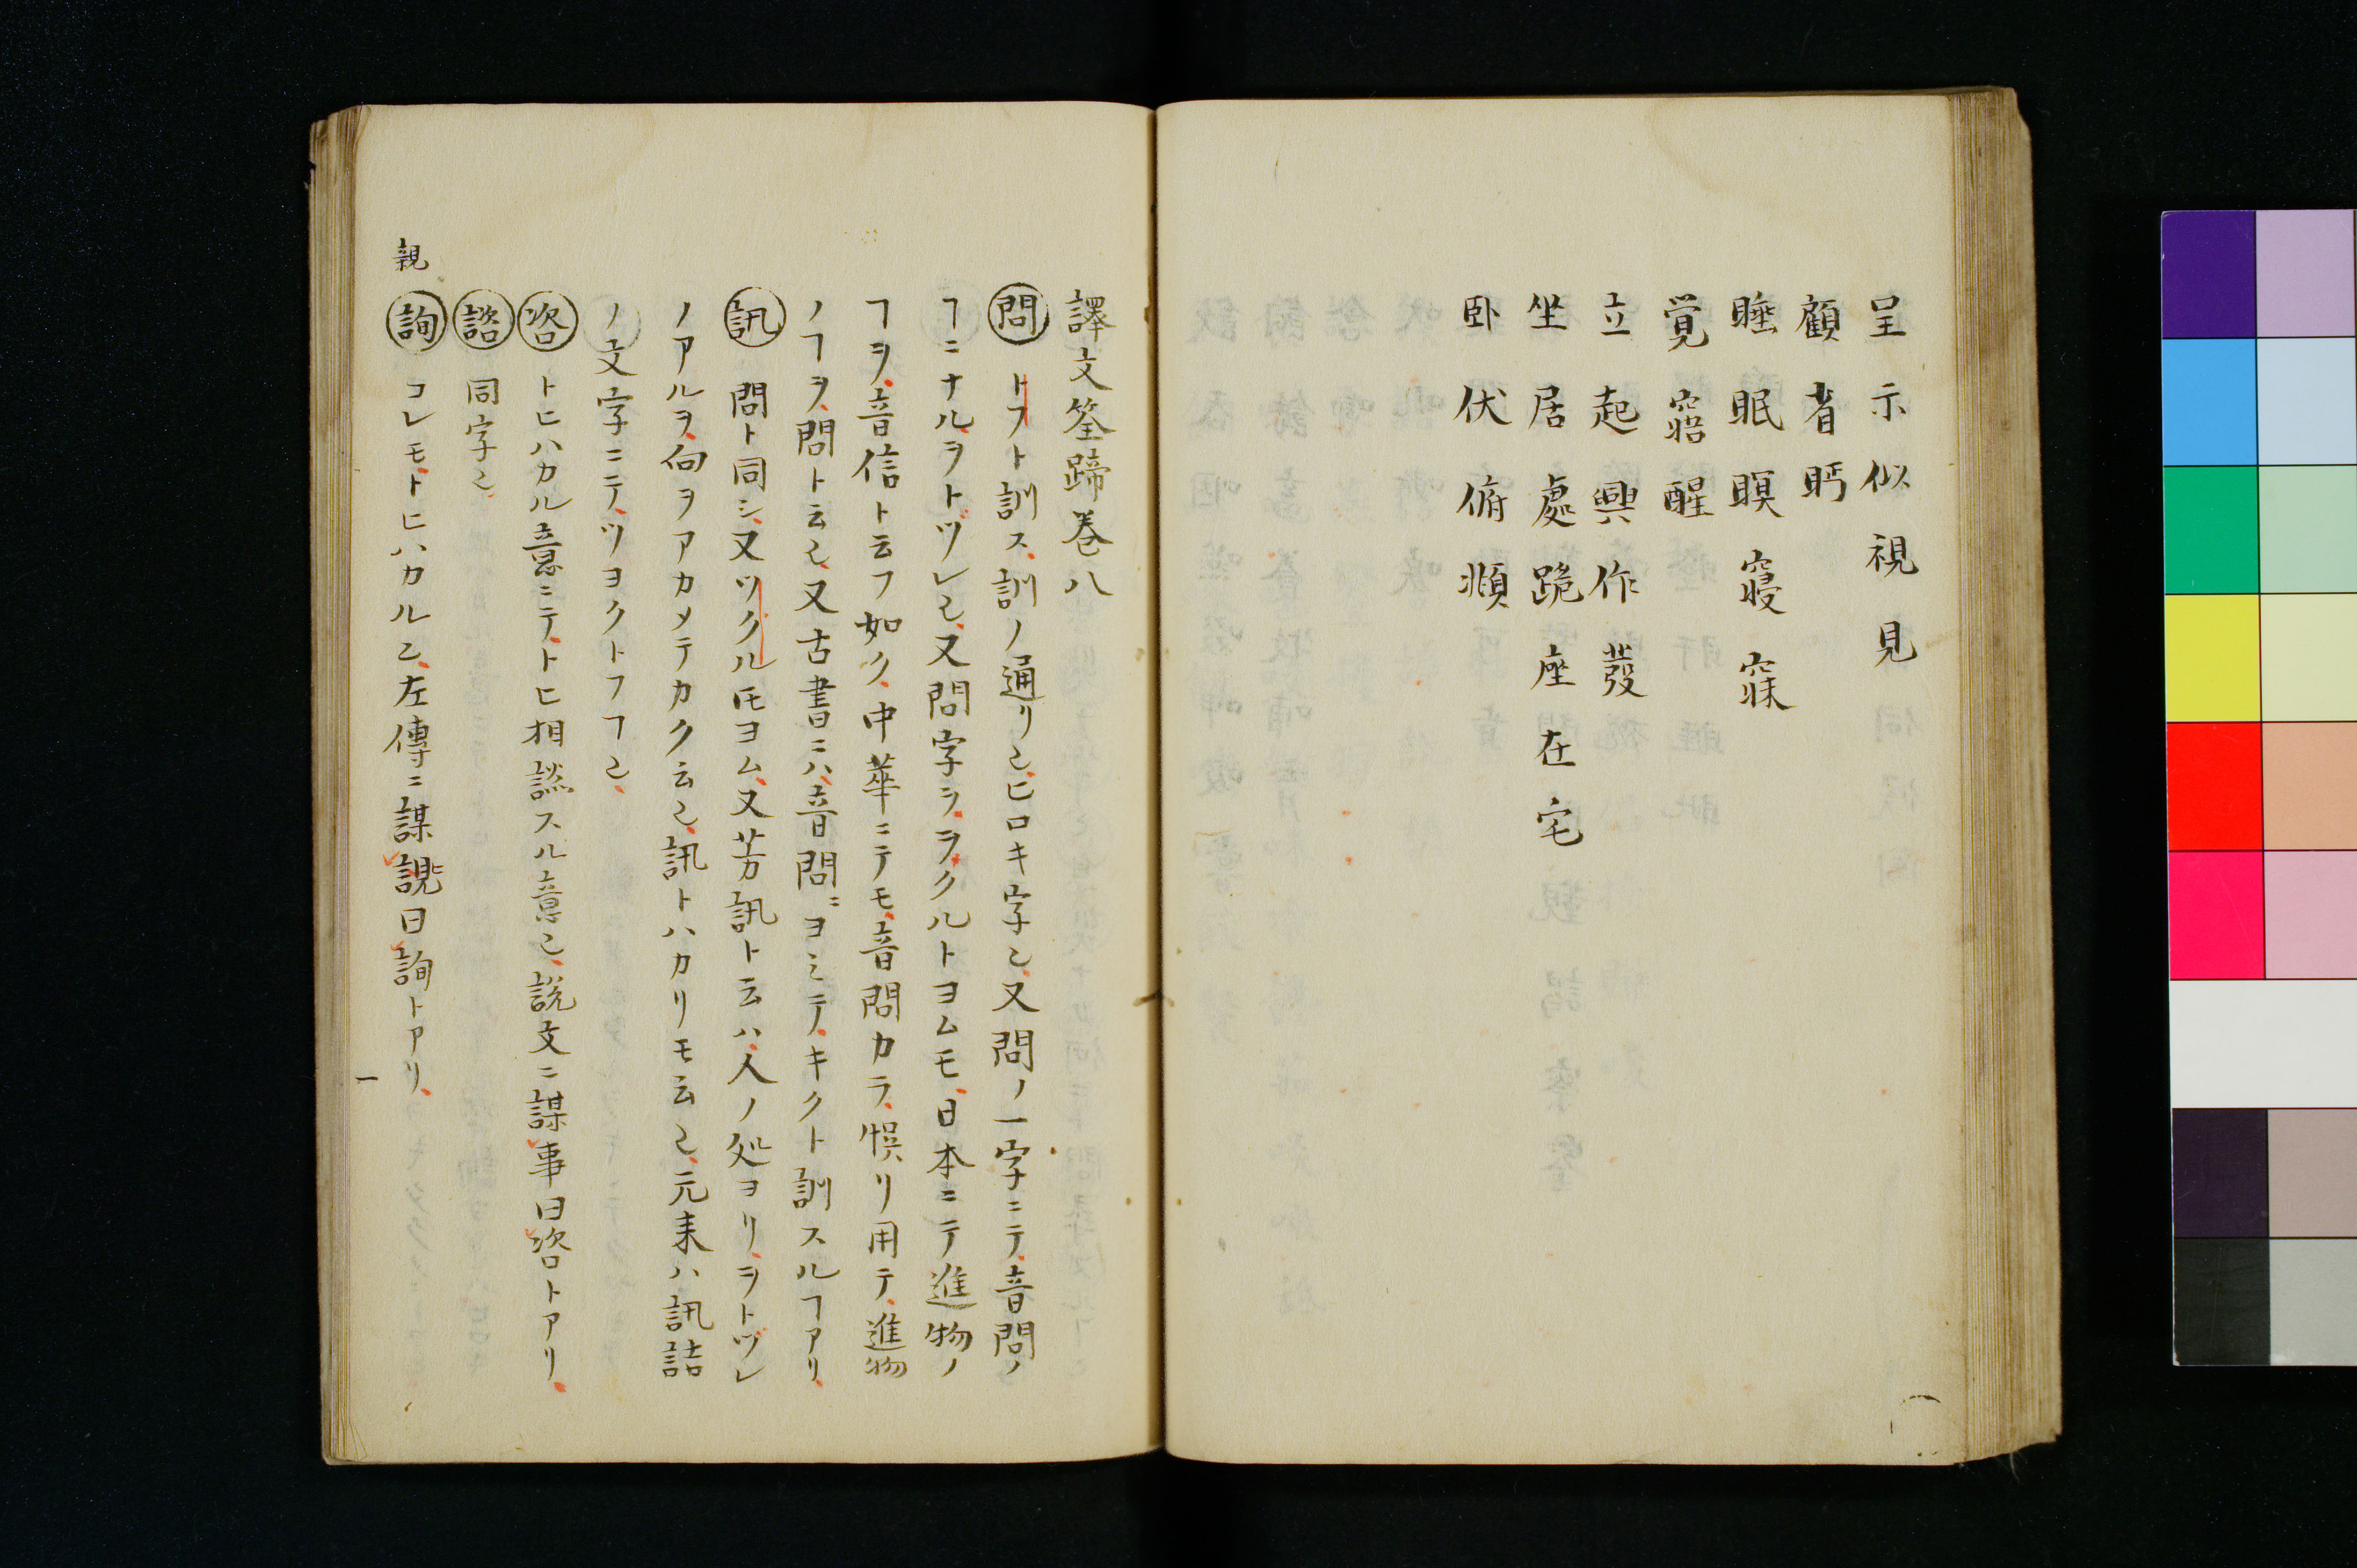 呈示似視見
顧省眄
睡眠瞑寝寐
覚寤醒
立起興作發
坐居處跪座在宅
卧伏俯頫
譯文筌蹄巻八
問 トフト訓ス、訓ノ通リ也、ヒロキ字也、又問ノ一字ニテ、音問ノ
ヿニナル、ヲトヅレ也、又問字ヲ、ヲクルトヨムモ、日本ニテ進物ノ
ヿヲ、音信ト云フ如ク、中華ニテモ、音問カラ、悞リ用テ、進物
ノヿヲ、問ト云也、又古書ニハ、音問ニヨミテ、キクト訓スルヿアリ、
訊 問ト同シ、又ツクル𪜈ヨム、又芳訊ト云ハ、人ノ処ヨリ、ヲトヅレ
ノアルヲ、向ヲアカメテカク云也、訊トハカリモ云也、元来ハ訊詰
ノ文字ニテ、ツヨクトフヿ也、
咨 トヒハカル意ニテ、トヒ相談スル意也、説文ニ謀事曰咨トアリ、
諮 同字也、
詢 コレモ、トヒハカル也、左傳ニ謀 曰詢トアリ、
親
一